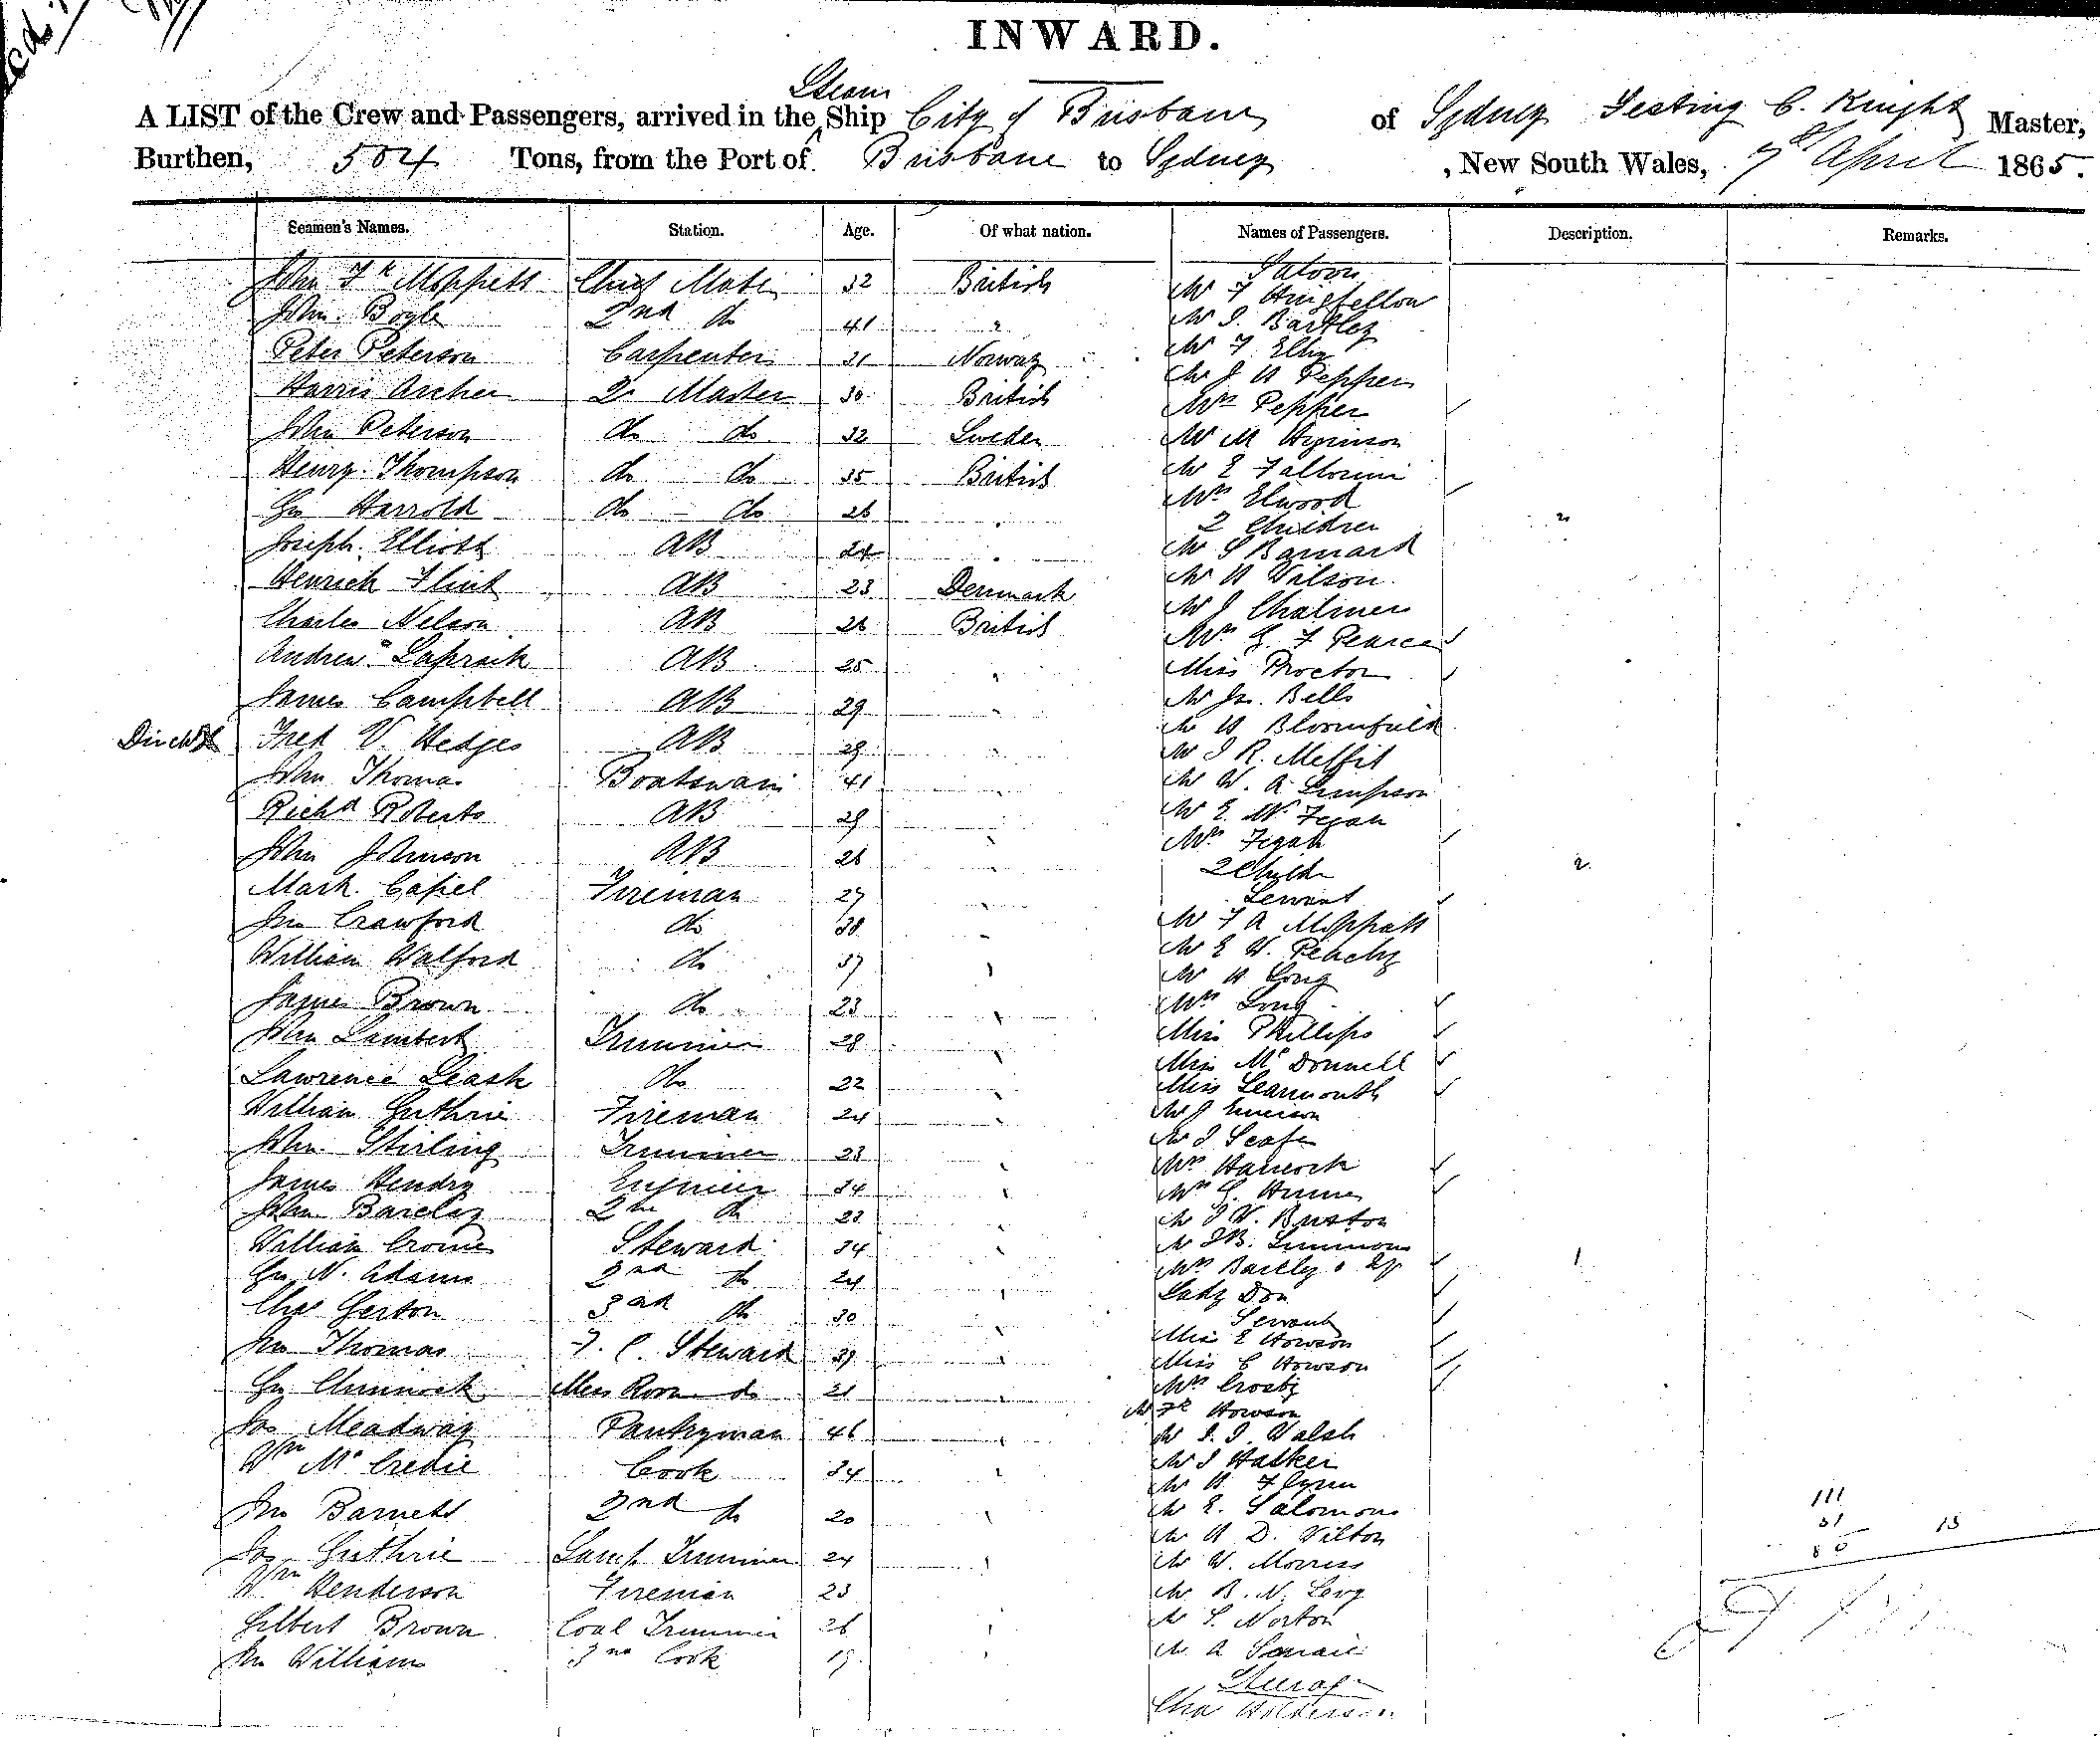 INWARD.
Steam
A LIST of the Crew and Passengers, arrived in the Ship City of Brisbane of Sydney C. Knight Master,
Burthen, 504 Tons, from the Port of Brisbane to Sydney, New South Wales, 7th April 1865.
Seamen's Names. Station. Age. Of what nation. Names of Passengers. Description. Remarks.
Saloon
John Fk Moppett Chief Mate 32 British Mr F
John Boyle 2nd do 41 " Mr J. Bartley
Peter Peterson Carpenter 31 Norway Mr F.
Harris Archer Qr Master 30 British Mr J H Pepper
Mrs Pepper
John Peterson do do 32 Sweden Mr M
Henry Thompson do do 35 British Mr E
Mrs Elwood
Geo Harrold do do 26 " 2 Children 2
Joseph Elliott AB 24 " Mr S Barnard
Henrich Flint AB 23 Denmark Mr H Wilson
Charles Nelson AB 26 British Mr J Chalmers
Mrs G F Pearce
Andrew Lapraik AB 25 " Miss Proctor
James Campbell AB 29 " Mr Jno. Bells
Mr H Bloomfield
Fred V. Hedges AB 29 " Mr J R. Meffit
John Thomas Boatswain 41 " Mr W. A Simpson
Richd Roberts AB 29 " Mr E. W. Fegan
Mrs Fegan
John Johnson AB 26 " 2 Childn 2
Mark Capel Fireman 27 " Servant
Jno Crawford do 38 " Mr F A Moppatt
William Walford do 37 " Mr E W. Peachy
Mr H Long
James Brown do 23 " Mrs Long
John Lambert Trimmer 28 " Miss Phillips
Miss McDonnell
Lawrence Leask do 22 " Miss Learmouth
William Guthrie Fireman 24 " Mr J Emerson
Mr J
John Stirling Trimmer 23 " Mrs Hancock
James Hendry Engineer 34 " Mrs G.
John Barclay 2nd do 23 " Mr J W. Buston
William Steward 34 " Mr J B. Simmons
Mrs Bartley 1
Geo N. Adams 2nd do 24 " Lady Don
Chas Gerton 3rd do 30 " Servant
Miss E Howson
Jno Thomas F. C. Steward 39 " Miss C Howson
Geo Chinnock Mess Room do 21 " Mrs Crosby
Mr Fk Howson
Jas Meadway Pantryman 46 " Mr J. J. Walsh
Wm McCredie Cook 34 " Mr J
Mr H Flynn
Jno Barnett 2nd do 20 " Mr E. Salomons
Mr H D. Wilton
Jas Guthrie Lamp Trimmer 24 " Mr W. Morriss
Wm Henderson Fireman 23 " Mr B. N. Levy
Gilbert Brown Coal Trimmer 26 " Mr S. Norton
Jno Williams 3rd Cook 19 " Mr A
Steerage
Chas
111
31
80
15